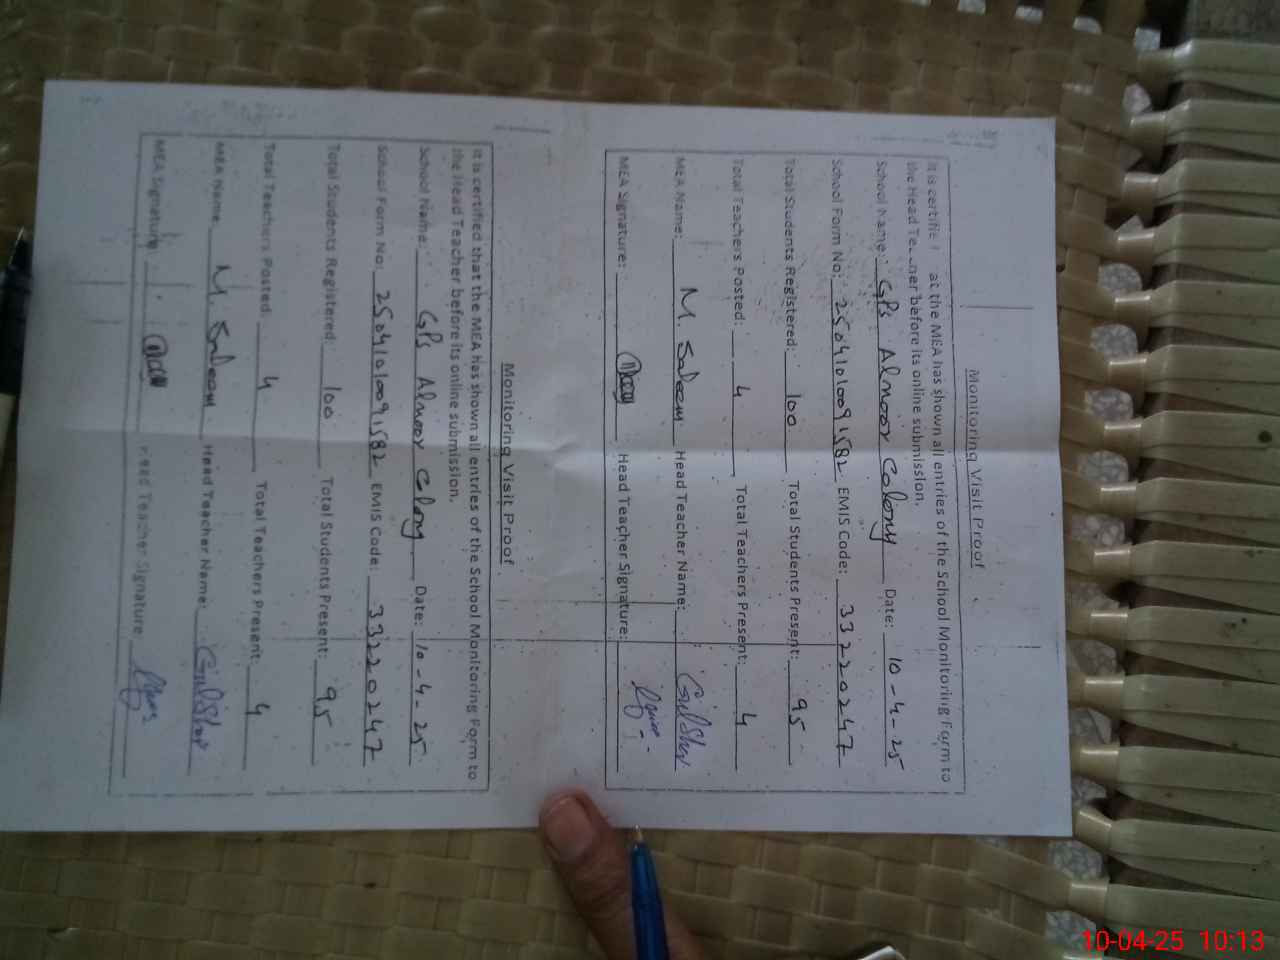 Monitoring Visit Proof
It is certifie at the MEA has shown all entries of the School Monitoring Form to
the Head Te ner before its online submission.
School Name: GPS Alnoor Colony Date: 10-4-25
School Form No: 2504101009 1582 EMIS Code: 33220247
Total Students Registered: 100 Total Students Present: 95
Total Teachers Posted: 4 Total Teachers Present: 4
MEA Name: M. Saleem Head Teacher Name: Gulsher
MEA Signature: Head Teacher Signature:
Monitoring Visit Proof
It is certified that the MEA has shown all entries of the School Monitoring Form to
the Head Teacher before its online submission.
School Name: GPS Alnoor Clony Date: 10-4-25
School Form No: 2504101009 1582 EMIS Code: 33220247
Total Students Registered: 100 Total Students Present: 95
Total Teachers Posted: 4 Total Teachers Present: 4
MEA Name: M Saleem Head Teacher Name: Gulsher
MEA Signature: Head Teacher Signature
10-04-25 10:13